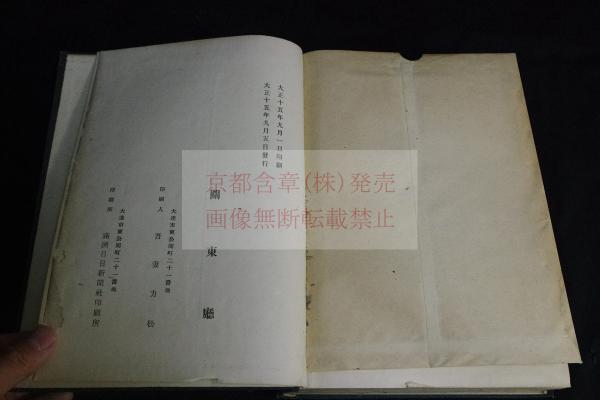 大正十五年九月一日印刷
大正十五年九月五日發行
關東廳
大連市東公園町二十一番地
印刷人 吾妻力松
大連市東公園町二十一番地
印刷所 滿洲日日新聞社印刷所
京都含章(株)発売
画像無断転載禁止